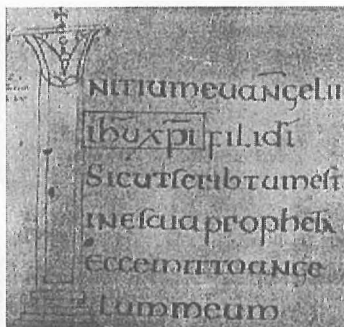 INITIUMEUANGELII
ihūxp̄i filid̄i
SICUTscribtumest
INEsaiapropheta
ECCEMITTOANGE
lummeum